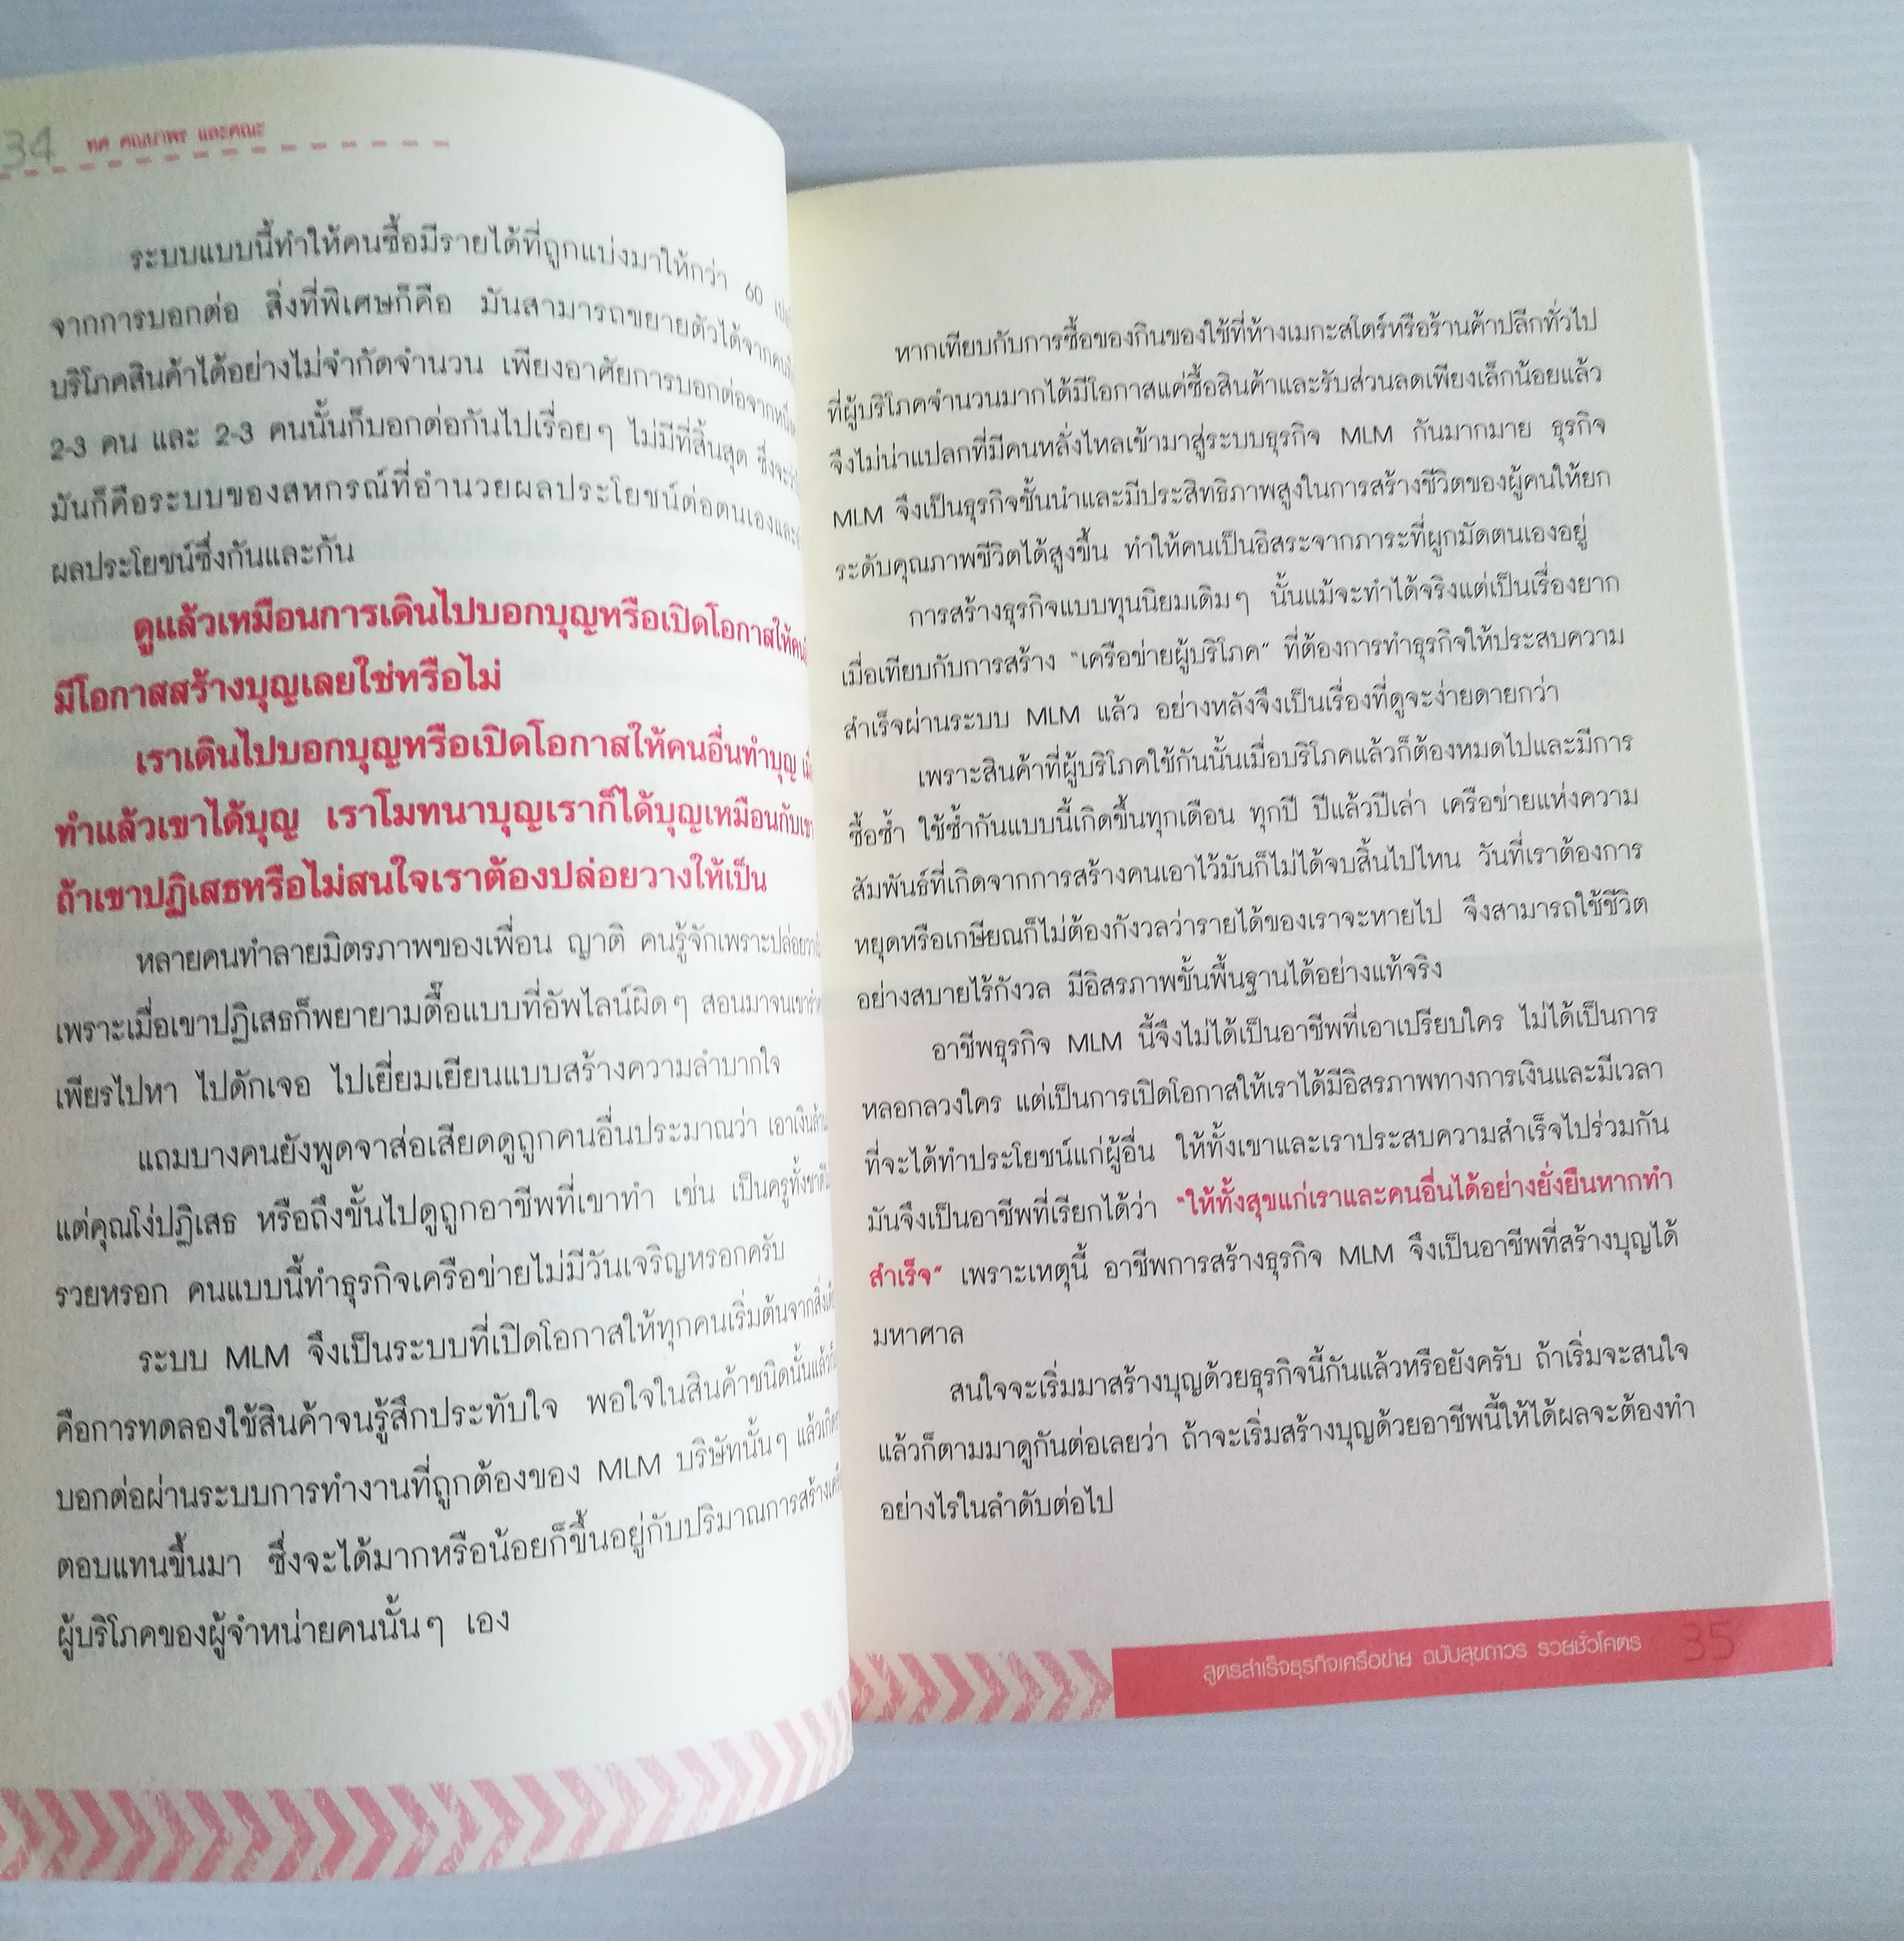 34 ทศ คณนาพร และคณะ
ระบบแบบนี้ทำให้คนซื้อมีรายได้ที่ถูกแบ่งมาให้กว่า 60
จากการบอกต่อ สิ่งที่พิเศษก็คือ มันสามารถขยายตัวได้จาก
บริโภคสินค้าได้อย่างไม่จำกัดจำนวน เพียงอาศัยการบอกต่อจาก
2-3 คน และ 2-3 คนนั้นก็บอกต่อกันไปเรื่อยๆ ไม่มีที่สิ้นสุด ซึ่งจะ
มันก็คือระบบของสหกรณ์ที่อำนวยผลประโยชน์ต่อตนเองและ
ผลประโยชน์ซึ่งกันและกัน
ดูแล้วเหมือนการเดินไปบอกบุญหรือเปิดโอกาสให้คน
มีโอกาสสร้างบุญเลยใช่หรือไม่
เราเดินไปบอกบุญหรือเปิดโอกาสให้คนอื่นทำบุญ
ทำแล้วเขาได้บุญ เราโมทนาบุญเราก็ได้บุญเหมือนกับ
ถ้าเขาปฏิเสธหรือไม่สนใจเราต้องปล่อยวางให้เป็น
หลายคนทำลายมิตรภาพของเพื่อน ญาติ คนรู้จักเพราะปล่อย
เพราะเมื่อเขาปฏิเสธก็พยายามตื๊อแบบที่อัพไลน์ผิดๆ สอนมาจน
เพียรไปหา ไปดักเจอ ไปเยี่ยมเยียนแบบสร้างความลำบากใจ
แถมบางคนยังพูดจาส่อเสียดดูถูกคนอื่นประมาณว่า
แต่คุณโง่ปฏิเสธ หรือถึงขั้นไปดูถูกอาชีพที่เขาทำ เช่น
รวยหรอก คนแบบนี้ทำธุรกิจเครือข่ายไม่มีวันเจริญหรอกครับ
ระบบ MLM จึงเป็นระบบที่เปิดโอกาสให้ทุกคนเริ่มต้นจาก
คือการทดลองใช้สินค้าจนรู้สึกประทับใจ พอใจในสินค้าชนิดนั้น
บอกต่อผ่านระบบการทำงานที่ถูกต้องของ MLM บริษัทนั้นๆ
ตอบแทนขึ้นมา ซึ่งจะได้มากหรือน้อยก็ขึ้นอยู่กับปริมาณการสร้าง
ผู้บริโภคของผู้จำหน่ายคนนั้นๆ เอง
หากเทียบกับการซื้อของกินของใช้ที่ห้างเมกะสโตร์หรือร้านค้าปลีกทั่วไป
ที่ผู้บริโภคจำนวนมากได้มีโอกาสแค่ซื้อสินค้าและรับส่วนลดเพียงเล็กน้อยแล้ว
จึงไม่น่าแปลกที่มีคนหลั่งไหลเข้ามาสู่ระบบธุรกิจ MLM กันมากมาย ธุรกิจ
MLM จึงเป็นธุรกิจชั้นนำและมีประสิทธิภาพสูงในการสร้างชีวิตของผู้คนให้ยก
ระดับคุณภาพชีวิตได้สูงขึ้น ทำให้คนเป็นอิสระจากภาระที่ผูกมัดตนเองอยู่
การสร้างธุรกิจแบบทุนนิยมเดิมๆ นั้นแม้จะทำได้จริงแต่เป็นเรื่องยาก
เมื่อเทียบกับการสร้าง “เครือข่ายผู้บริโภค” ที่ต้องการทำธุรกิจให้ประสบความ
สำเร็จผ่านระบบ MLM แล้ว อย่างหลังจึงเป็นเรื่องที่ดูจะง่ายดายกว่า
เพราะสินค้าที่ผู้บริโภคใช้กันนั้นเมื่อบริโภคแล้วก็ต้องหมดไปและมีการ
ซื้อซ้ำ ใช้ซ้ำกันแบบนี้เกิดขึ้นทุกเดือน ทุกปี ปีแล้วปีเล่า เครือข่ายแห่งความ
สัมพันธ์ที่เกิดจากการสร้างคนเอาไว้มันก็ไม่ได้จบสิ้นไปไหน วันที่เราต้องการ
หยุดหรือเกษียณก็ไม่ต้องกังวลว่ารายได้ของเราจะหายไป จึงสามารถใช้ชีวิต
อย่างสบายไร้กังวล มีอิสรภาพขั้นพื้นฐานได้อย่างแท้จริง
อาชีพธุรกิจ MLM นี้จึงไม่ได้เป็นอาชีพที่เอาเปรียบใคร ไม่ได้เป็นการ
หลอกลวงใคร แต่เป็นการเปิดโอกาสให้เราได้มีอิสรภาพทางการเงินและมีเวลา
ที่จะได้ทำประโยชน์แก่ผู้อื่น ให้ทั้งเขาและเราประสบความสำเร็จไปร่วมกัน
มันจึงเป็นอาชีพที่เรียกได้ว่า “ให้ทั้งสุขแก่เราและคนอื่นได้อย่างยั่งยืนหากทำ
สำเร็จ” เพราะเหตุนี้ อาชีพการสร้างธุรกิจ MLM จึงเป็นอาชีพที่สร้างบุญได้
มหาศาล
สนใจจะเริ่มมาสร้างบุญด้วยธุรกิจนี้กันแล้วหรือยังครับ ถ้าเริ่มจะสนใจ
แล้วก็ตามมาดูกันต่อเลยว่า ถ้าจะเริ่มสร้างบุญด้วยอาชีพนี้ให้ได้ผลจะต้องทำ
อย่างไรในลำดับต่อไป
สูตรสำเร็จธุรกิจเครือข่าย ฉบับสุขถาวร รวยชั่วโคตร 35